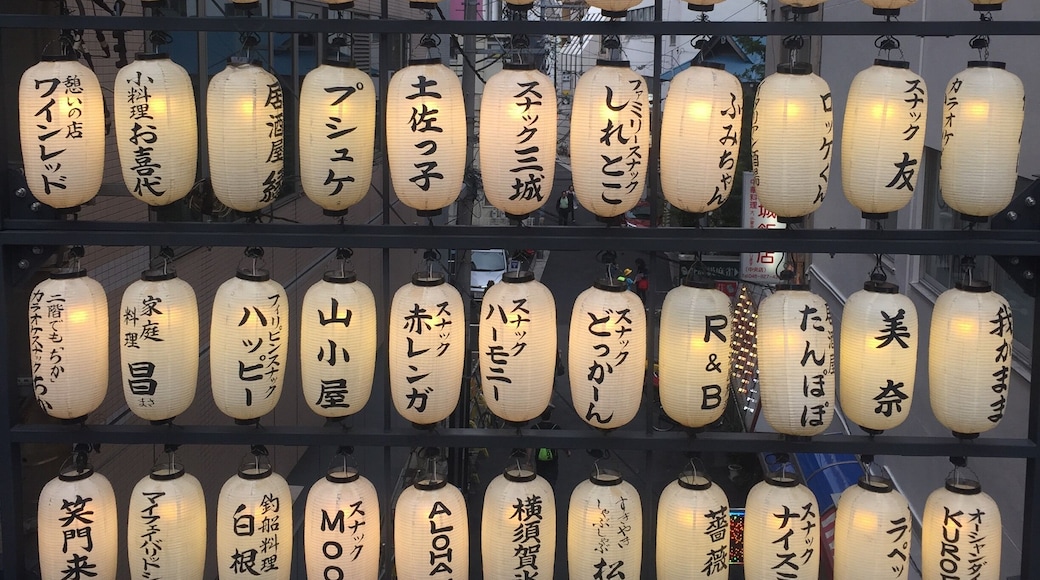 憩いの店
ワインレッド
小料理
お喜代
居酒屋
縁
プシュケ
土佐っ子
スナック
三城
ファミリースナック
しれとこ
ふみちゃん
ロックくん
スナック
友
カラオケ
二階でもっちか
カラオケスナック
家庭
料理
昌
まさ
フィリピンスナック
ハッピー
山小屋
スナック
赤レンガ
スナック
ハーモニー
スナック
どっかーん
R&B
たんぽぽ
美奈
我がまま
笑門来
マイフェイバリットシ
釣船料理
白根
スナック
MOO
ALOHA
横須賀
すきやき
しゃぶしゃぶ
松
薔薇
スナック
ナイス
ラペ
オーシャンダ
KURO
飯店